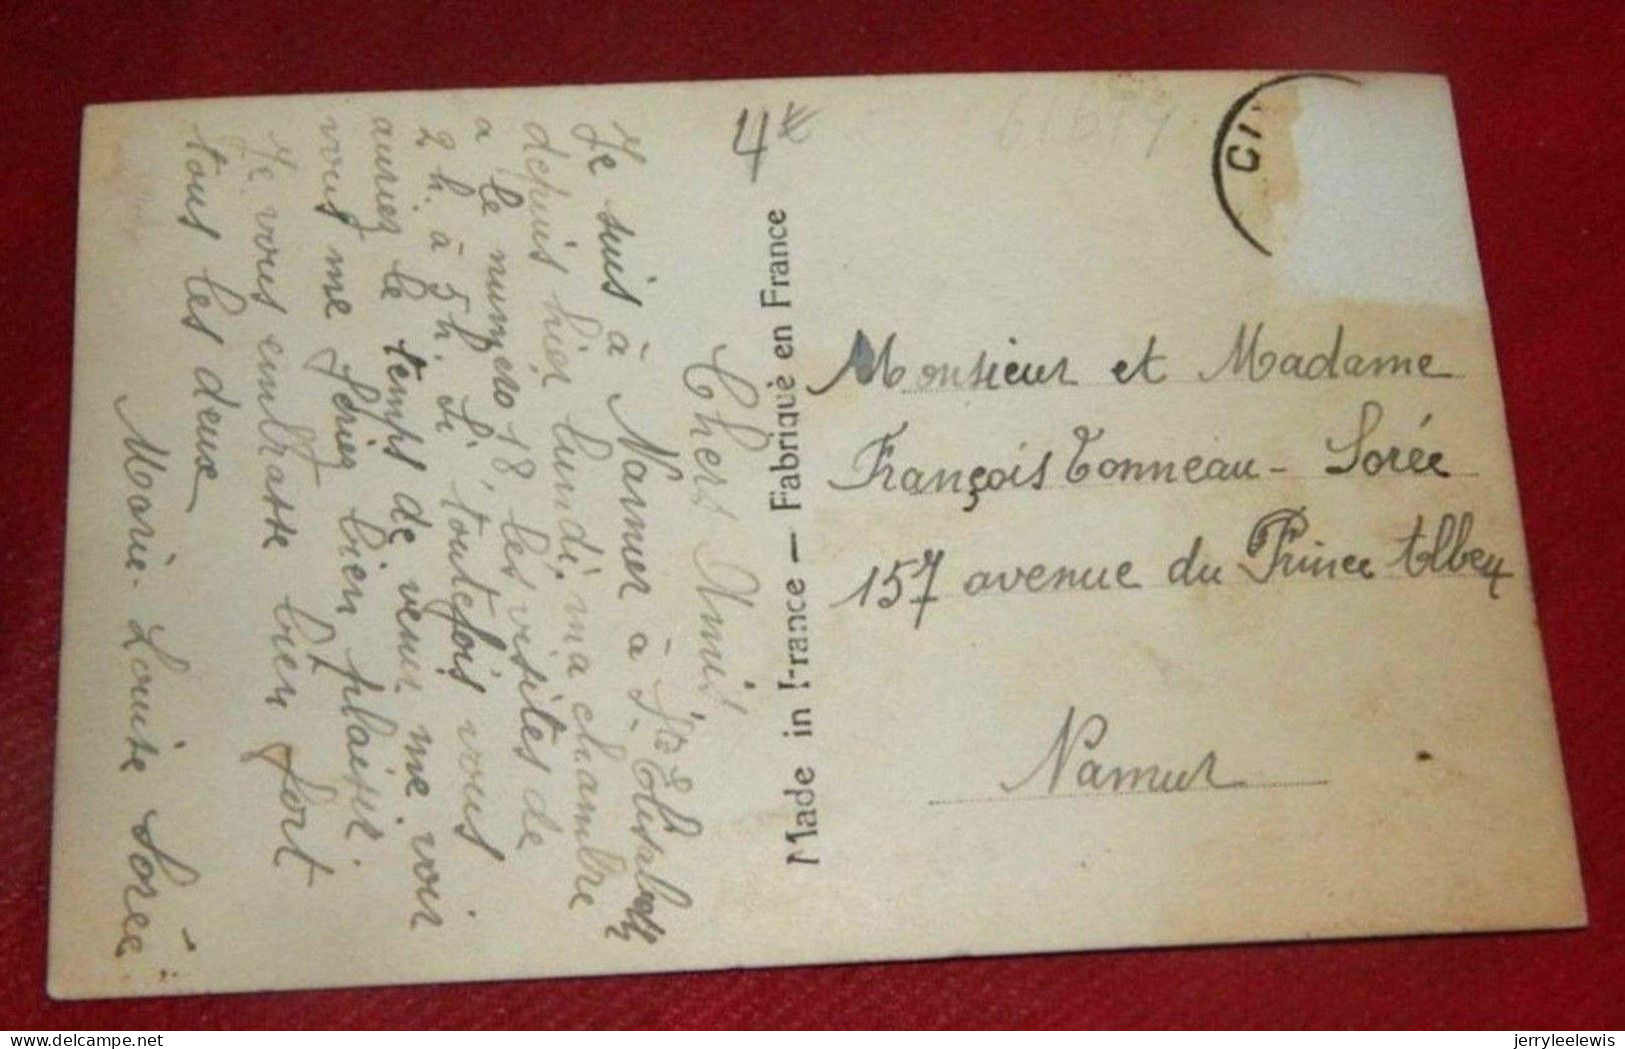 Chers Amis
Je suis à Namur à Ste Elisabeth
depuis hier lundi, ma chambre
a le numero 18, les visites de
2 h. à 5 h. Si, toutefois vous
auriez le temps de venir me voir
vous me feriez bien plaisir.
Je vous embrasse bien fort
tous les deux
Marie-Louise Sorée
Made in France — Fabriqué en France
4
61674
CI
Monsieur et Madame
François Tonneau - Sorée
157 avenue du Prince Albert
Namur
jerryleelewis